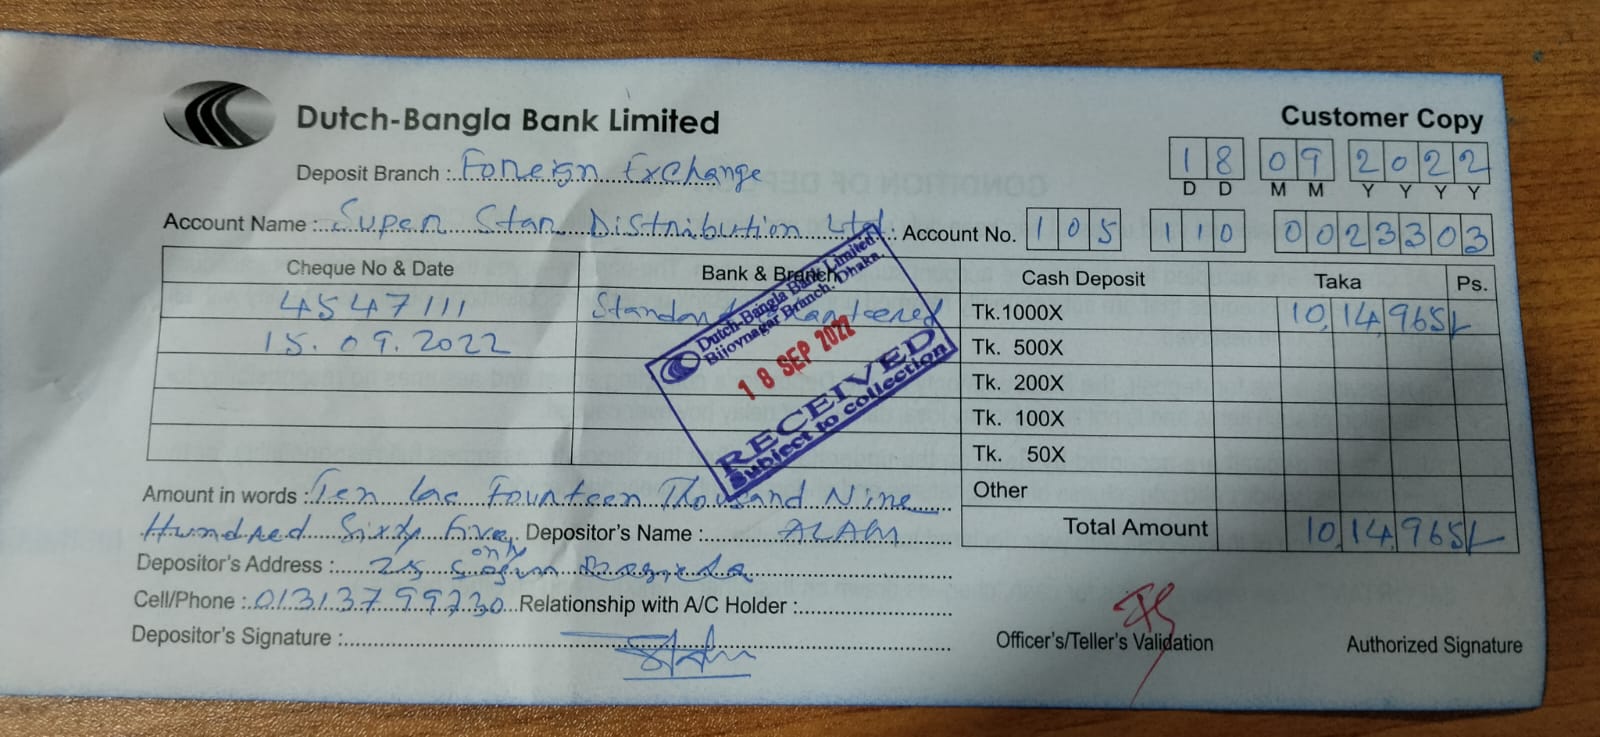 Dutch-Bangla Bank Limited
Customer Copy
Deposit Branch : Foreign Exchange
18 09 2022
D D M M Y Y Y Y
Account Name : Super Star Distribution Ltd. Account No. 105 110 0023303
Cheque No & Date Bank & Branch Cash Deposit Taka Ps.
4547111 Standard Chartered Tk.1000X 10,14,965/-
15.09.2022 Tk. 500X
Tk. 200X
Tk. 100X
Tk. 50X
Other
Total Amount 10,14,965/-
Dutch-Bangla Bank Limited
Bijoynagar Branch, Dhaka.
18 SEP 2022
RECEIVED
Subject to collection
Amount in words : Ten lac Fourteen Thousand Nine
Hundred Sixty Five only Depositor's Name : ALAM
Depositor's Address : 25
Cell/Phone : 01313799230 Relationship with A/C Holder :
Depositor's Signature :
Officer's/Teller's Validation Authorized Signature